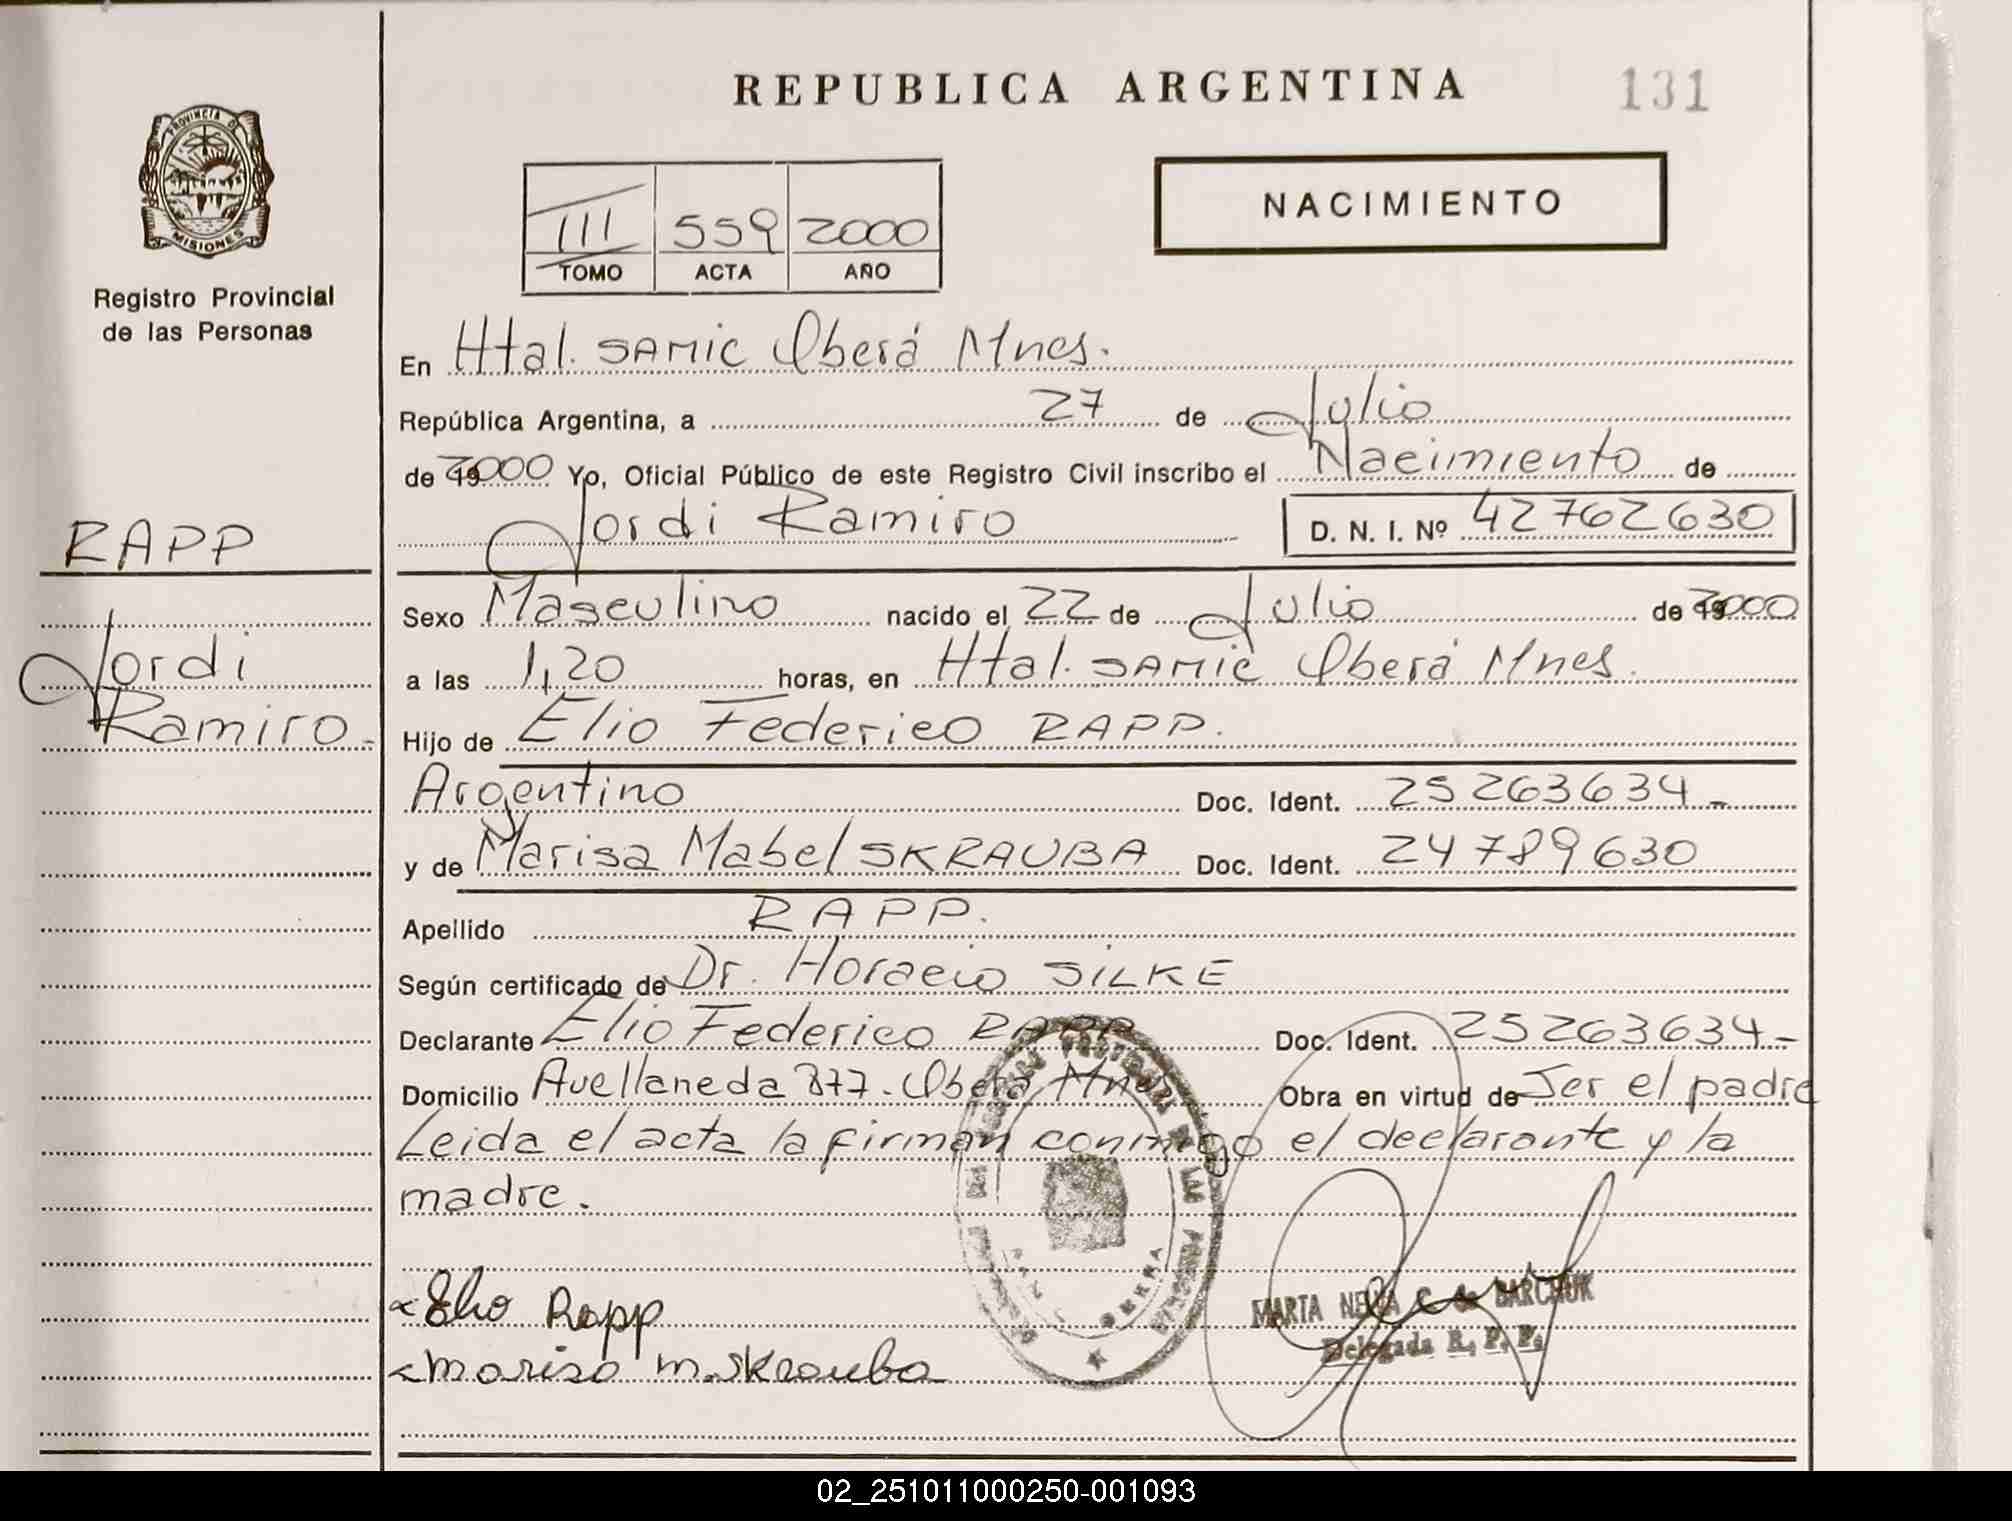 REPUBLICA ARGENTINA
131
PROVINCIA DE
MISIONES
Registro Provincial
de las Personas
III 559 2000
TOMO ACTA AÑO
NACIMIENTO
En Htal. SAMIC Oberá Mnes.
República Argentina, a 27 de Julio
de 2000 Yo, Oficial Público de este Registro Civil inscribo el Nacimiento de
Jordi Ramiro D. N. I. Nº 42762630
RAPP
Jordi
Ramiro.-
Sexo Masculino nacido el 22 de Julio de 2000
a las 1,20 horas, en Htal. SAMIC Oberá Mnes.
Hijo de Elio Federico RAPP.
Argentino Doc. Ident. 25263634-
y de Marisa Mabel SKRAUBA Doc. Ident. 24789630
Apellido RAPP.
Según certificado de Dr. Horacio SILKE
Declarante Elio Federico RAPP Doc. Ident. 25263634-
Domicilio Avellaneda 877. Oberá Mnes Obra en virtud de Ser el padre
Leida el acta la firman conmigo el declarante y la
madre.
Elio Rapp
Marisa M. Skrauba
MARTA NELVA C. de BARCHUK
Delegada R. P. P.
OBERA
02_251011000250-001093